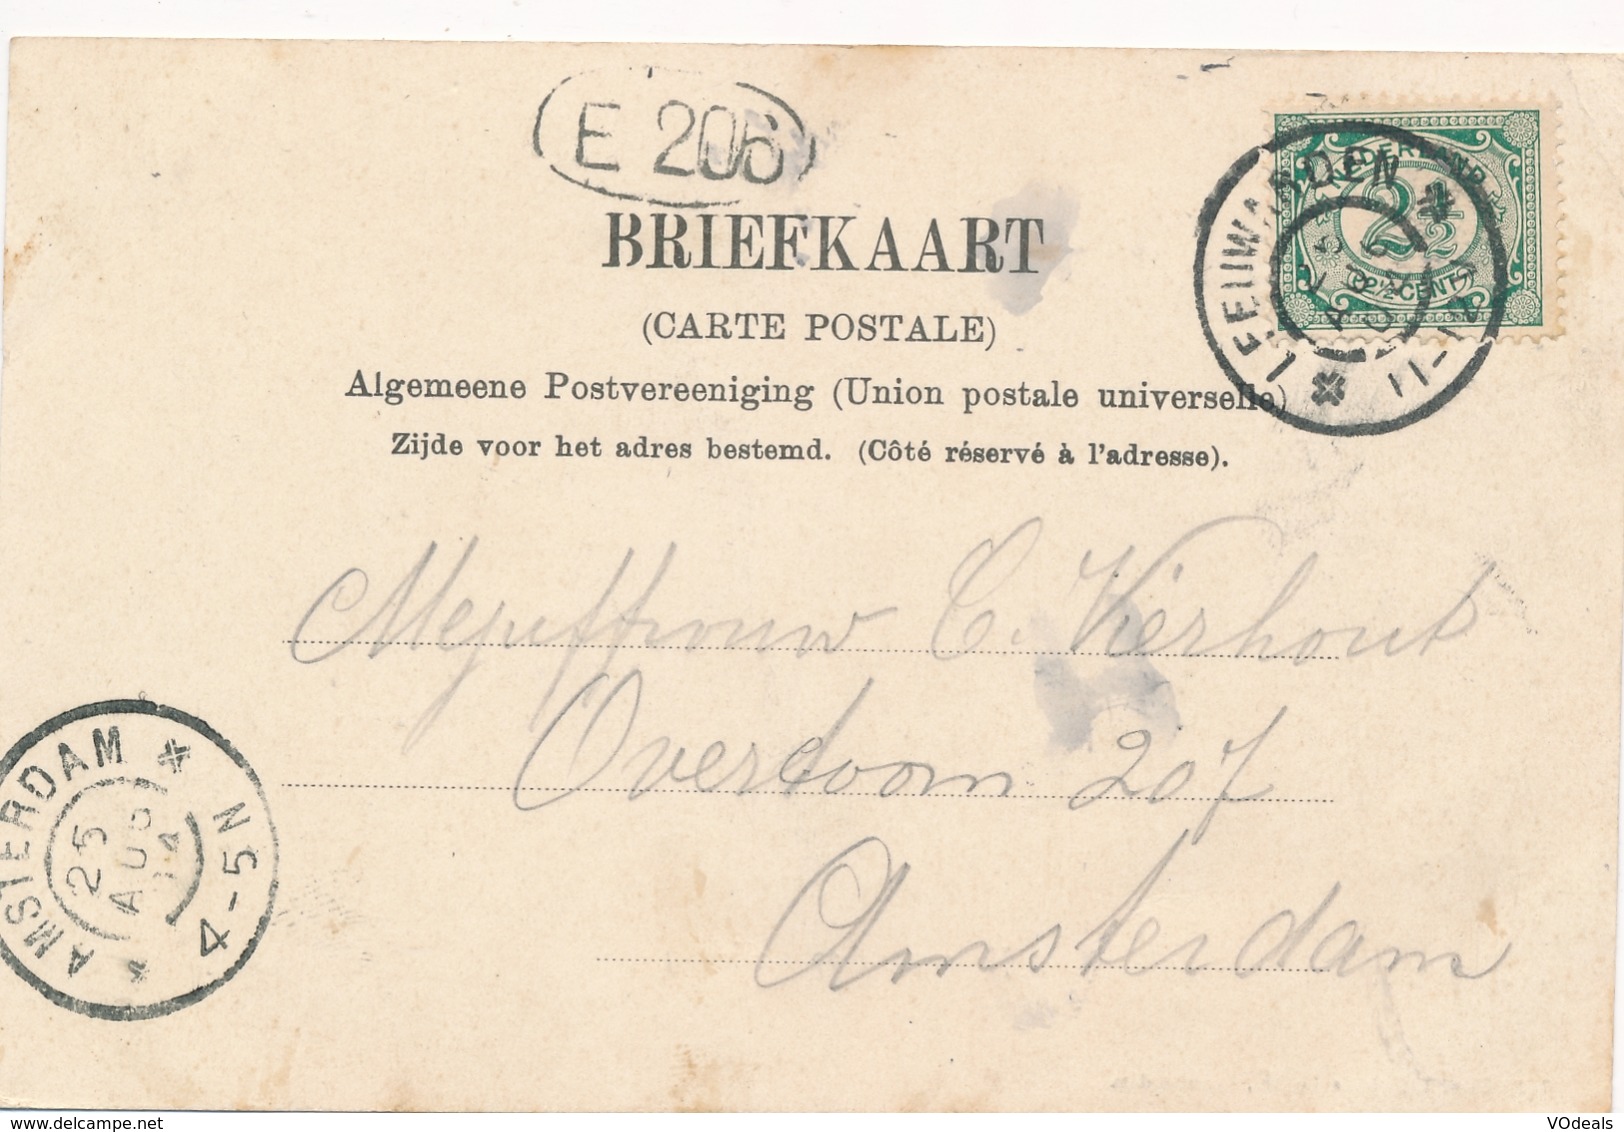 E 206
BRIEFKAART
(CARTE POSTALE)
Algemeene Postvereeniging (Union postale universelle)
Zijde voor het adres bestemd. (Côté réservé à l'adresse).
NEDERLAND
2½
(2½ CENT)
LEEUWARDEN
11-12
Mejuffrouw C. Vierhout
Overtoom 207
Amsterdam
AMSTERDAM
25
AUG
4-5N
VOdeals